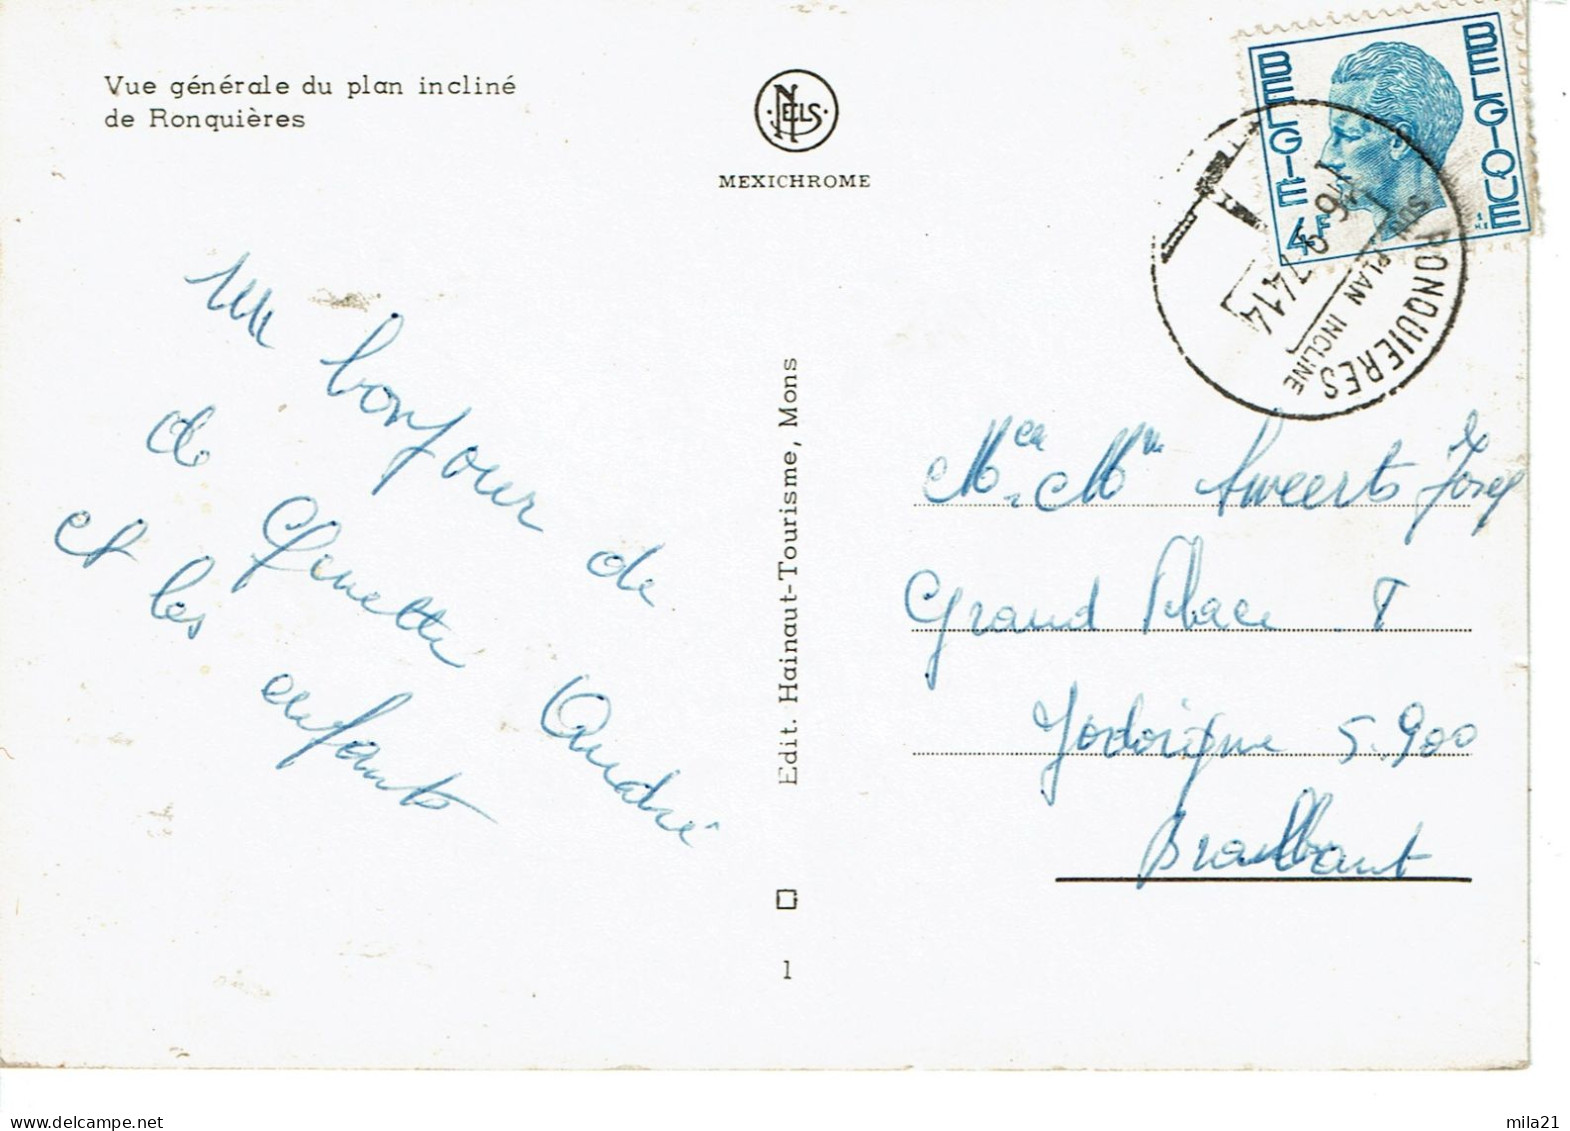 Vue générale du plan incliné
de Ronquières
NELS
MEXICHROME
BELGIE
BELGIQUE
4F
RONQUIERES
PLAN INCLINE
Un bonjour de
de Ginette André
et les enfants
Edit. Hainaut-Tourisme, Mons
1
Mr. Mm Sweerts Josef
Grand Place
Jodoigne 5.900
Brabant
mila21